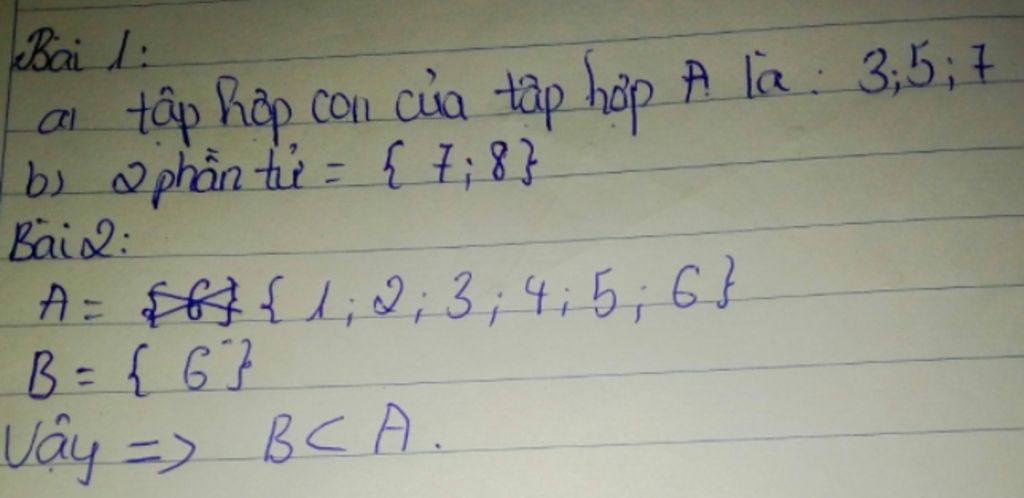 Bài 1:
a) tập hợp con của tập hợp A là: 3;5;7
b) 2 phần tử = { 7; 8}
Bài 2:
A = {6} { 1; 2; 3; 4; 5; 6}
B = { 6 }
Vậy => B ⊂ A.